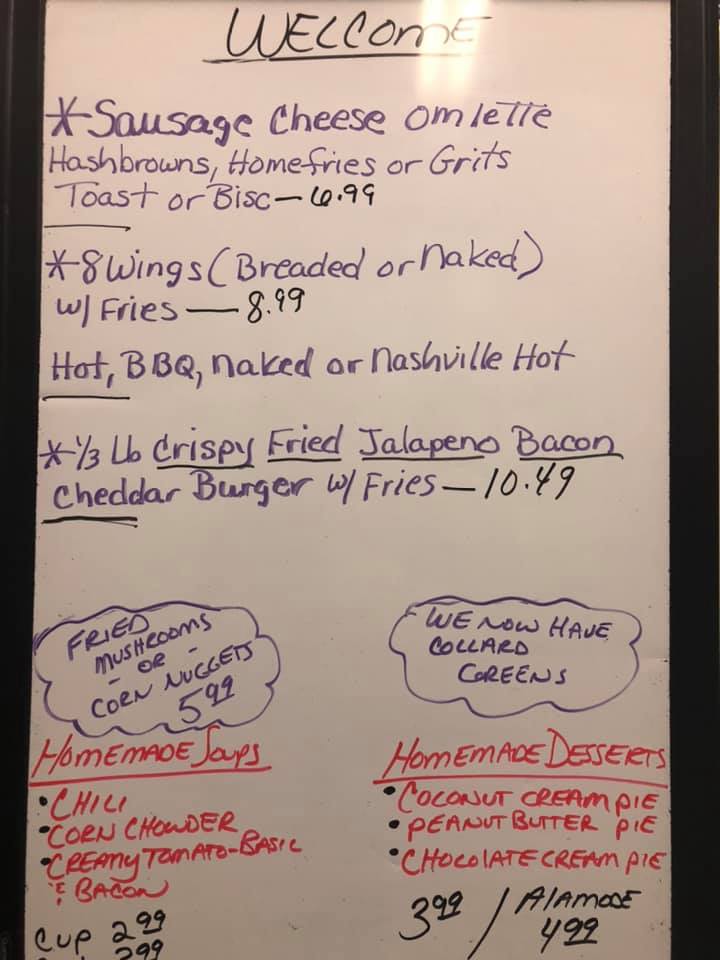 WELCOME
*Sausage Cheese Omlette
Hashbrowns, Homefries or Grits
Toast or Bisc — 6.99
*8 Wings (Breaded or Naked)
w/ Fries — 8.99
Hot, BBQ, Naked or Nashville Hot
*1/3 Lb Crispy Fried Jalapeno Bacon
Cheddar Burger w/ Fries — 10.49
FRIED
MUSHROOMS
- OR -
CORN NUGGETS
5.99
WE NOW HAVE
COLLARD
GREENS
HOMEMADE SOUPS
• CHILI
• CORN CHOWDER
• CREAMY TOMATO-BASIL
& BACON
Cup 2 99
HOMEMADE DESSERTS
• COCONUT CREAM PIE
• PEANUT BUTTER PIE
• CHOCOLATE CREAM PIE
3 99 / AlAMODE
4 99